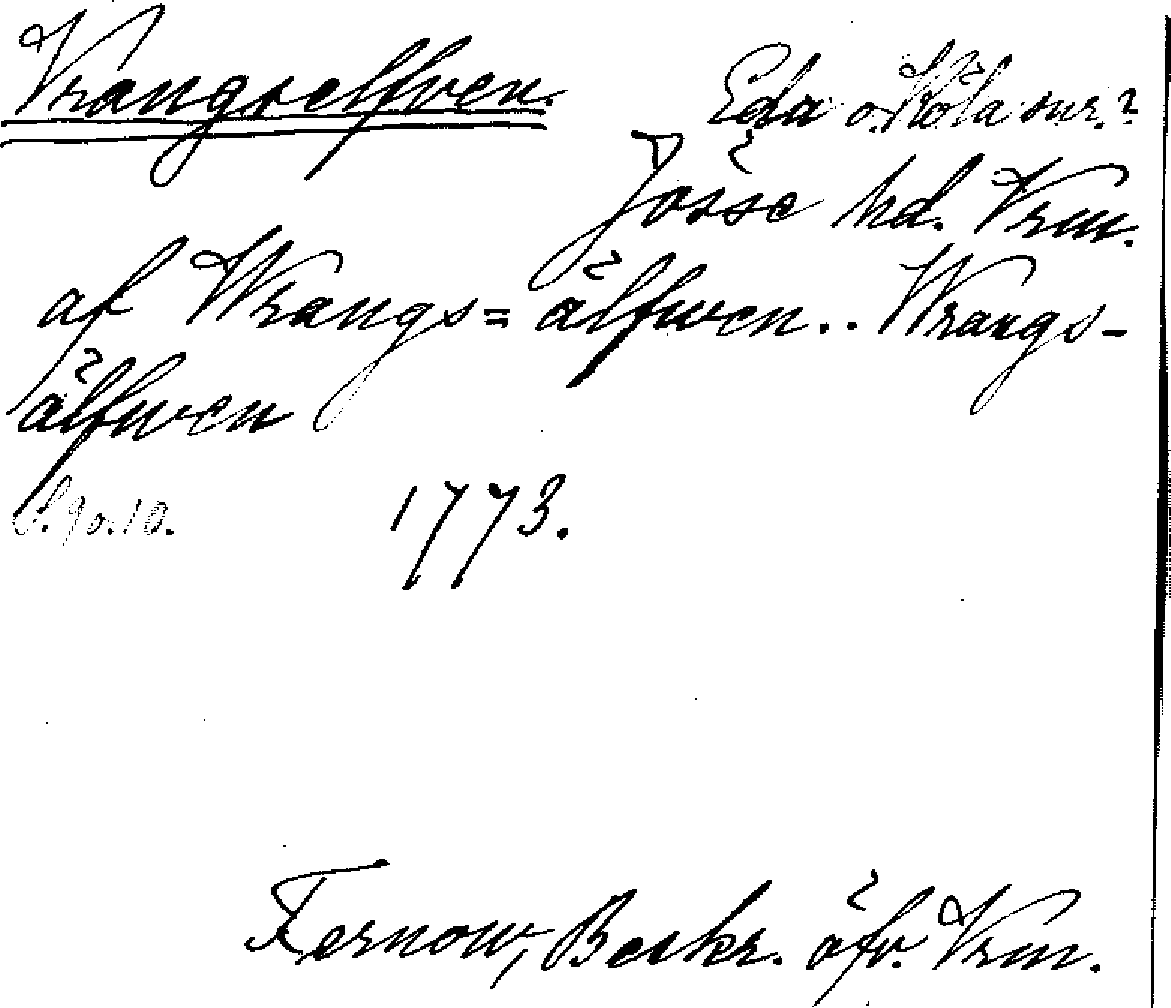 Vrangselfven.
Eda o. Köla snr.?
Jösse hd. Vrm.
af Wrangs=älfwen.. Wrangs-
älfwen
S. 90. 10.
1773.
Fernow, Beskr. öfv. Vrm.